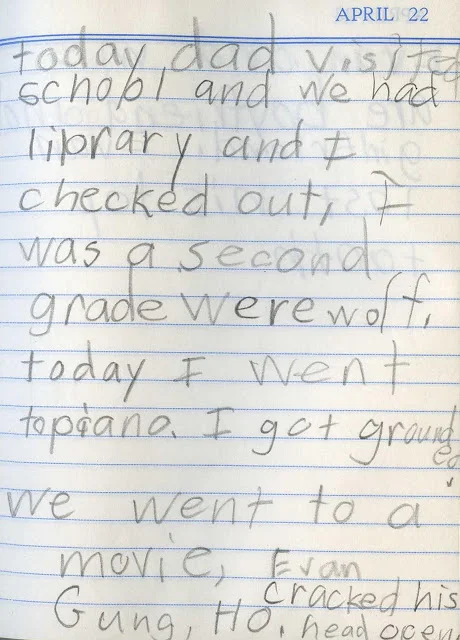 APRIL 22
today dad visited
school and we had
library and I
checked out, I
was a second
grade werewolf.
today I went
topiano. I got ground
ed
we went to a
movie, Evan
cracked his
Gung, HO. head ocen